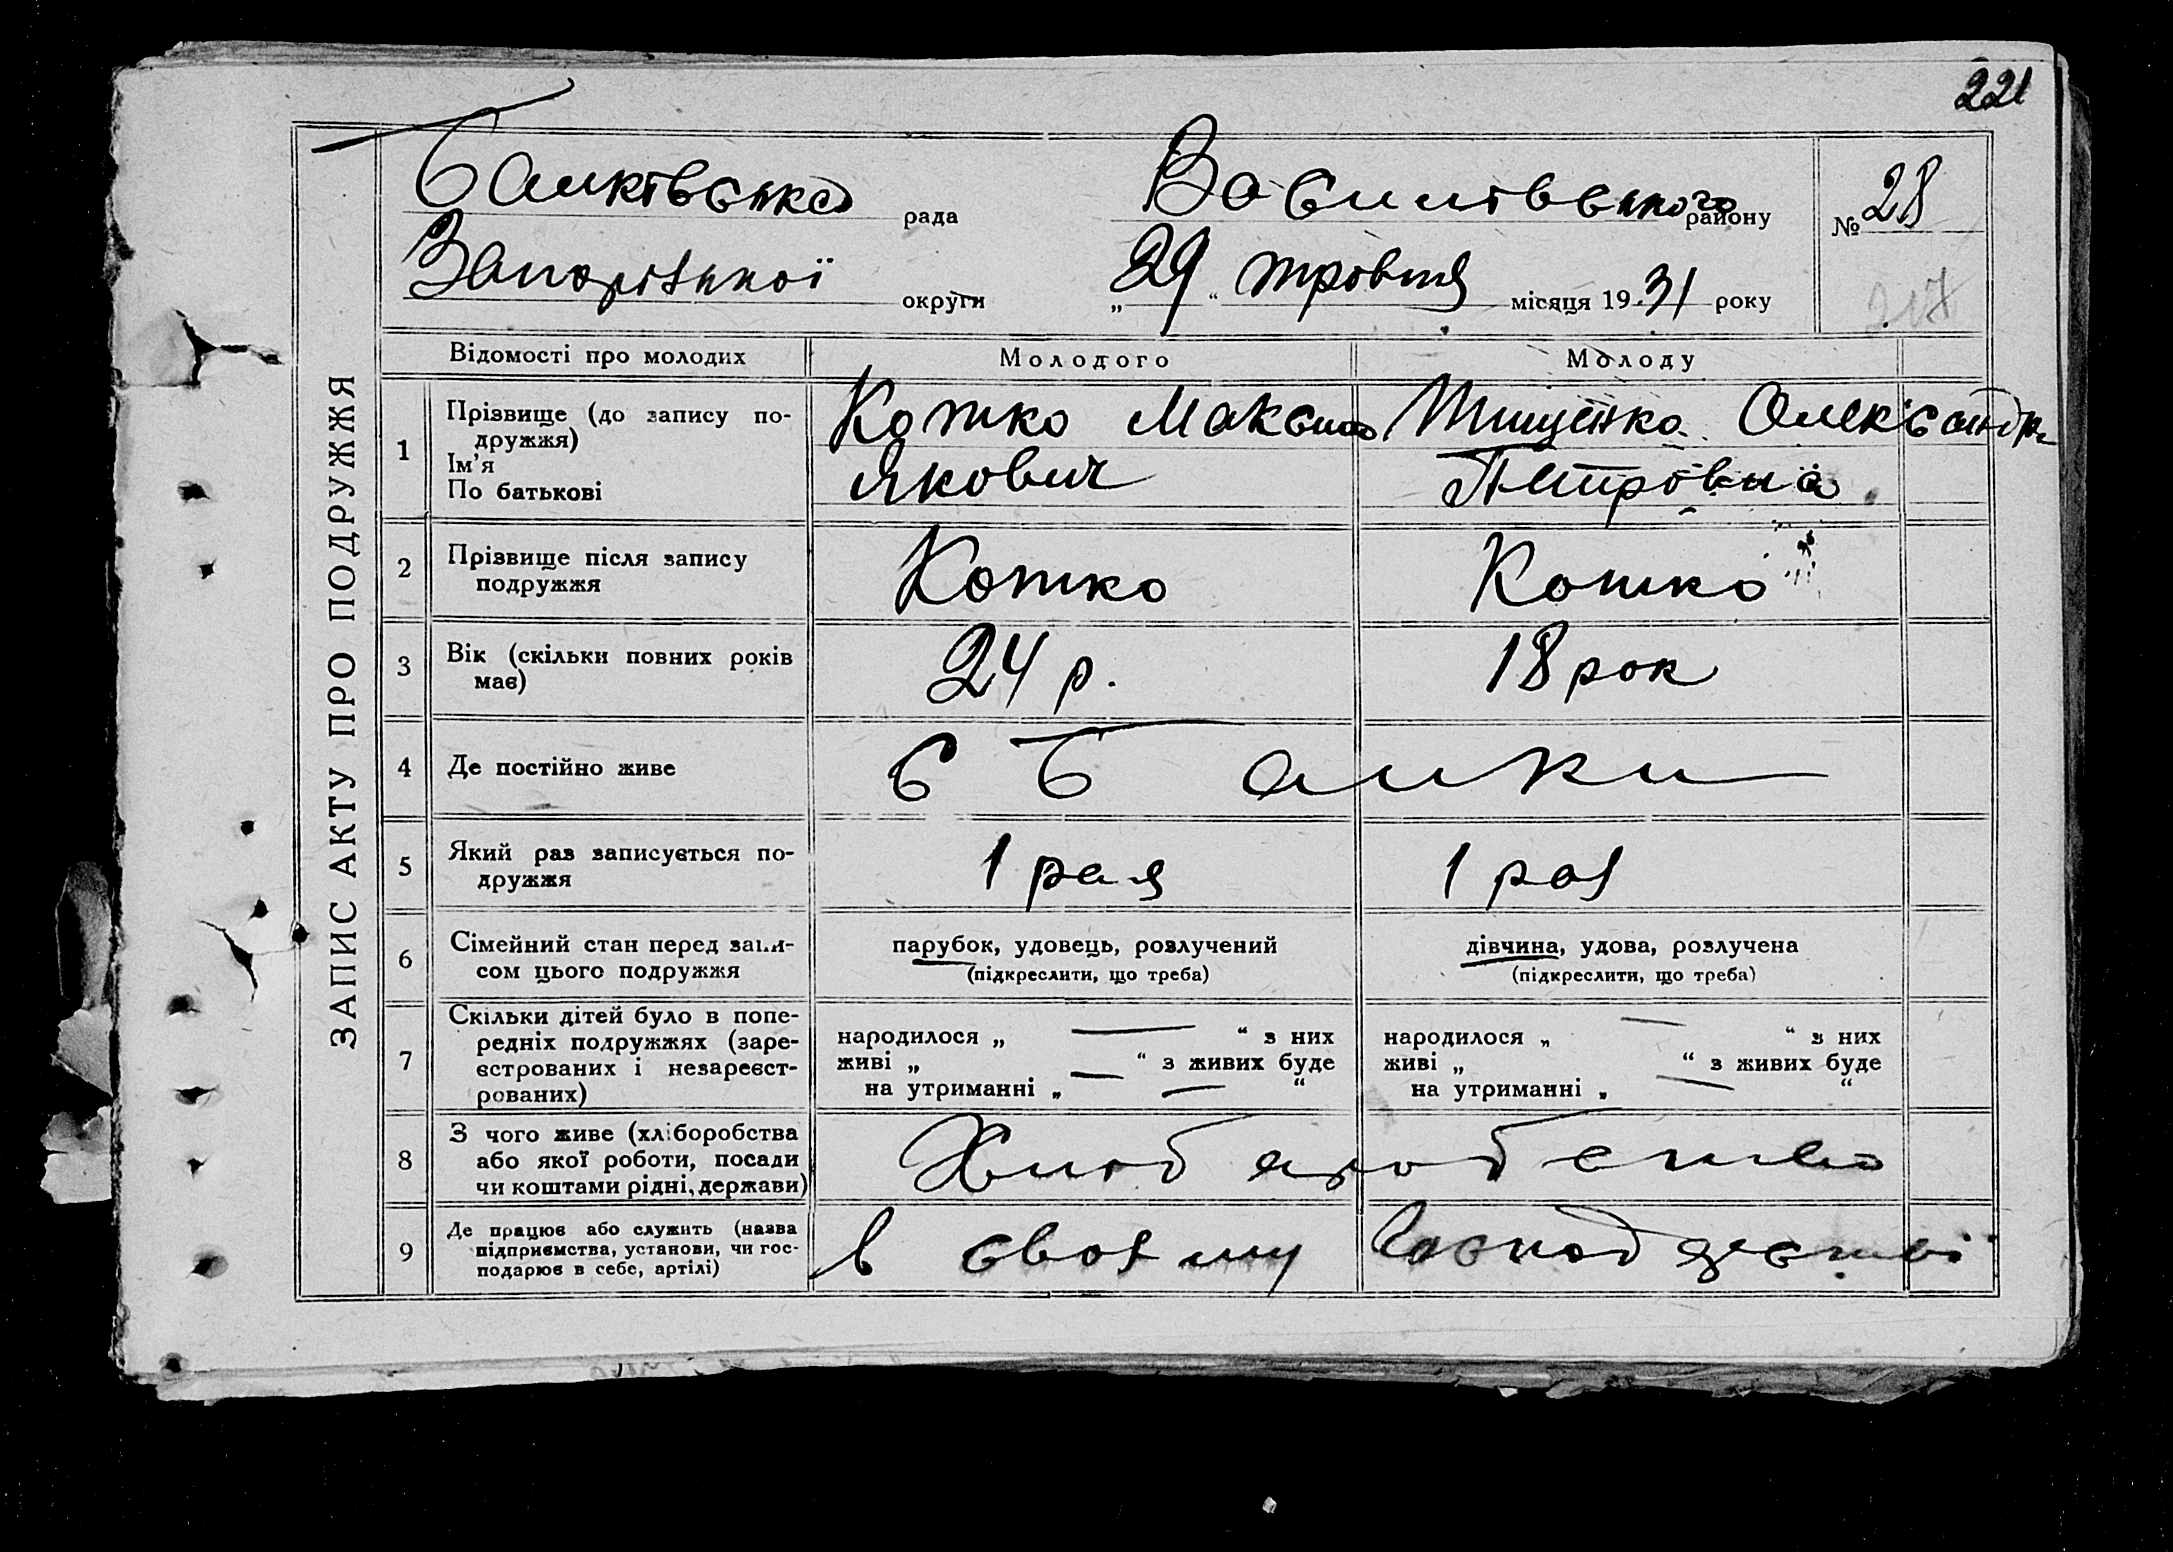 221
Балківська рада Василівського району № 28
Запорізької округи „29“ жовтня місяця 1931 року
217
ЗАПИС АКТУ ПРО ПОДРУЖЖЯ
Відомості про молодих Молодого Молоду
1 Прізвище (до запису по-
дружжя)
Ім'я
По батькові
Котко Максим
Якович
Тищенко Олександра
Петровна
2 Прізвище після запису
подружжя
Котко Котко
3 Вік (скільки повних років
має)
24 р. 18 рок
4 Де постійно живе
с Балки
5 Який раз записується по-
дружжя
1 раз 1 раз
6 Сімейний стан перед запи-
сом цього подружжя
парубок, удовець, розлучений
(підкреслити, що треба)
дівчина, удова, розлучена
(підкреслити, що треба)
7 Скільки дітей було в попе-
редніх подружжях (заре-
єстрованих і незареєст-
рованих)
народилося „ — “ з них
живі „ — “ з живих буде
на утриманні „ — “
народилося „ — “ з них
живі „ — “ з живих буде
на утриманні „ — “
8 З чого живе (хліборобства
або якої роботи, посади
чи коштами рідні, держави)
Хліборобство
9 Де працює або служить (назва
підприємства, установи, чи гос-
подарює в себе, артілі)
в своєму господарстві